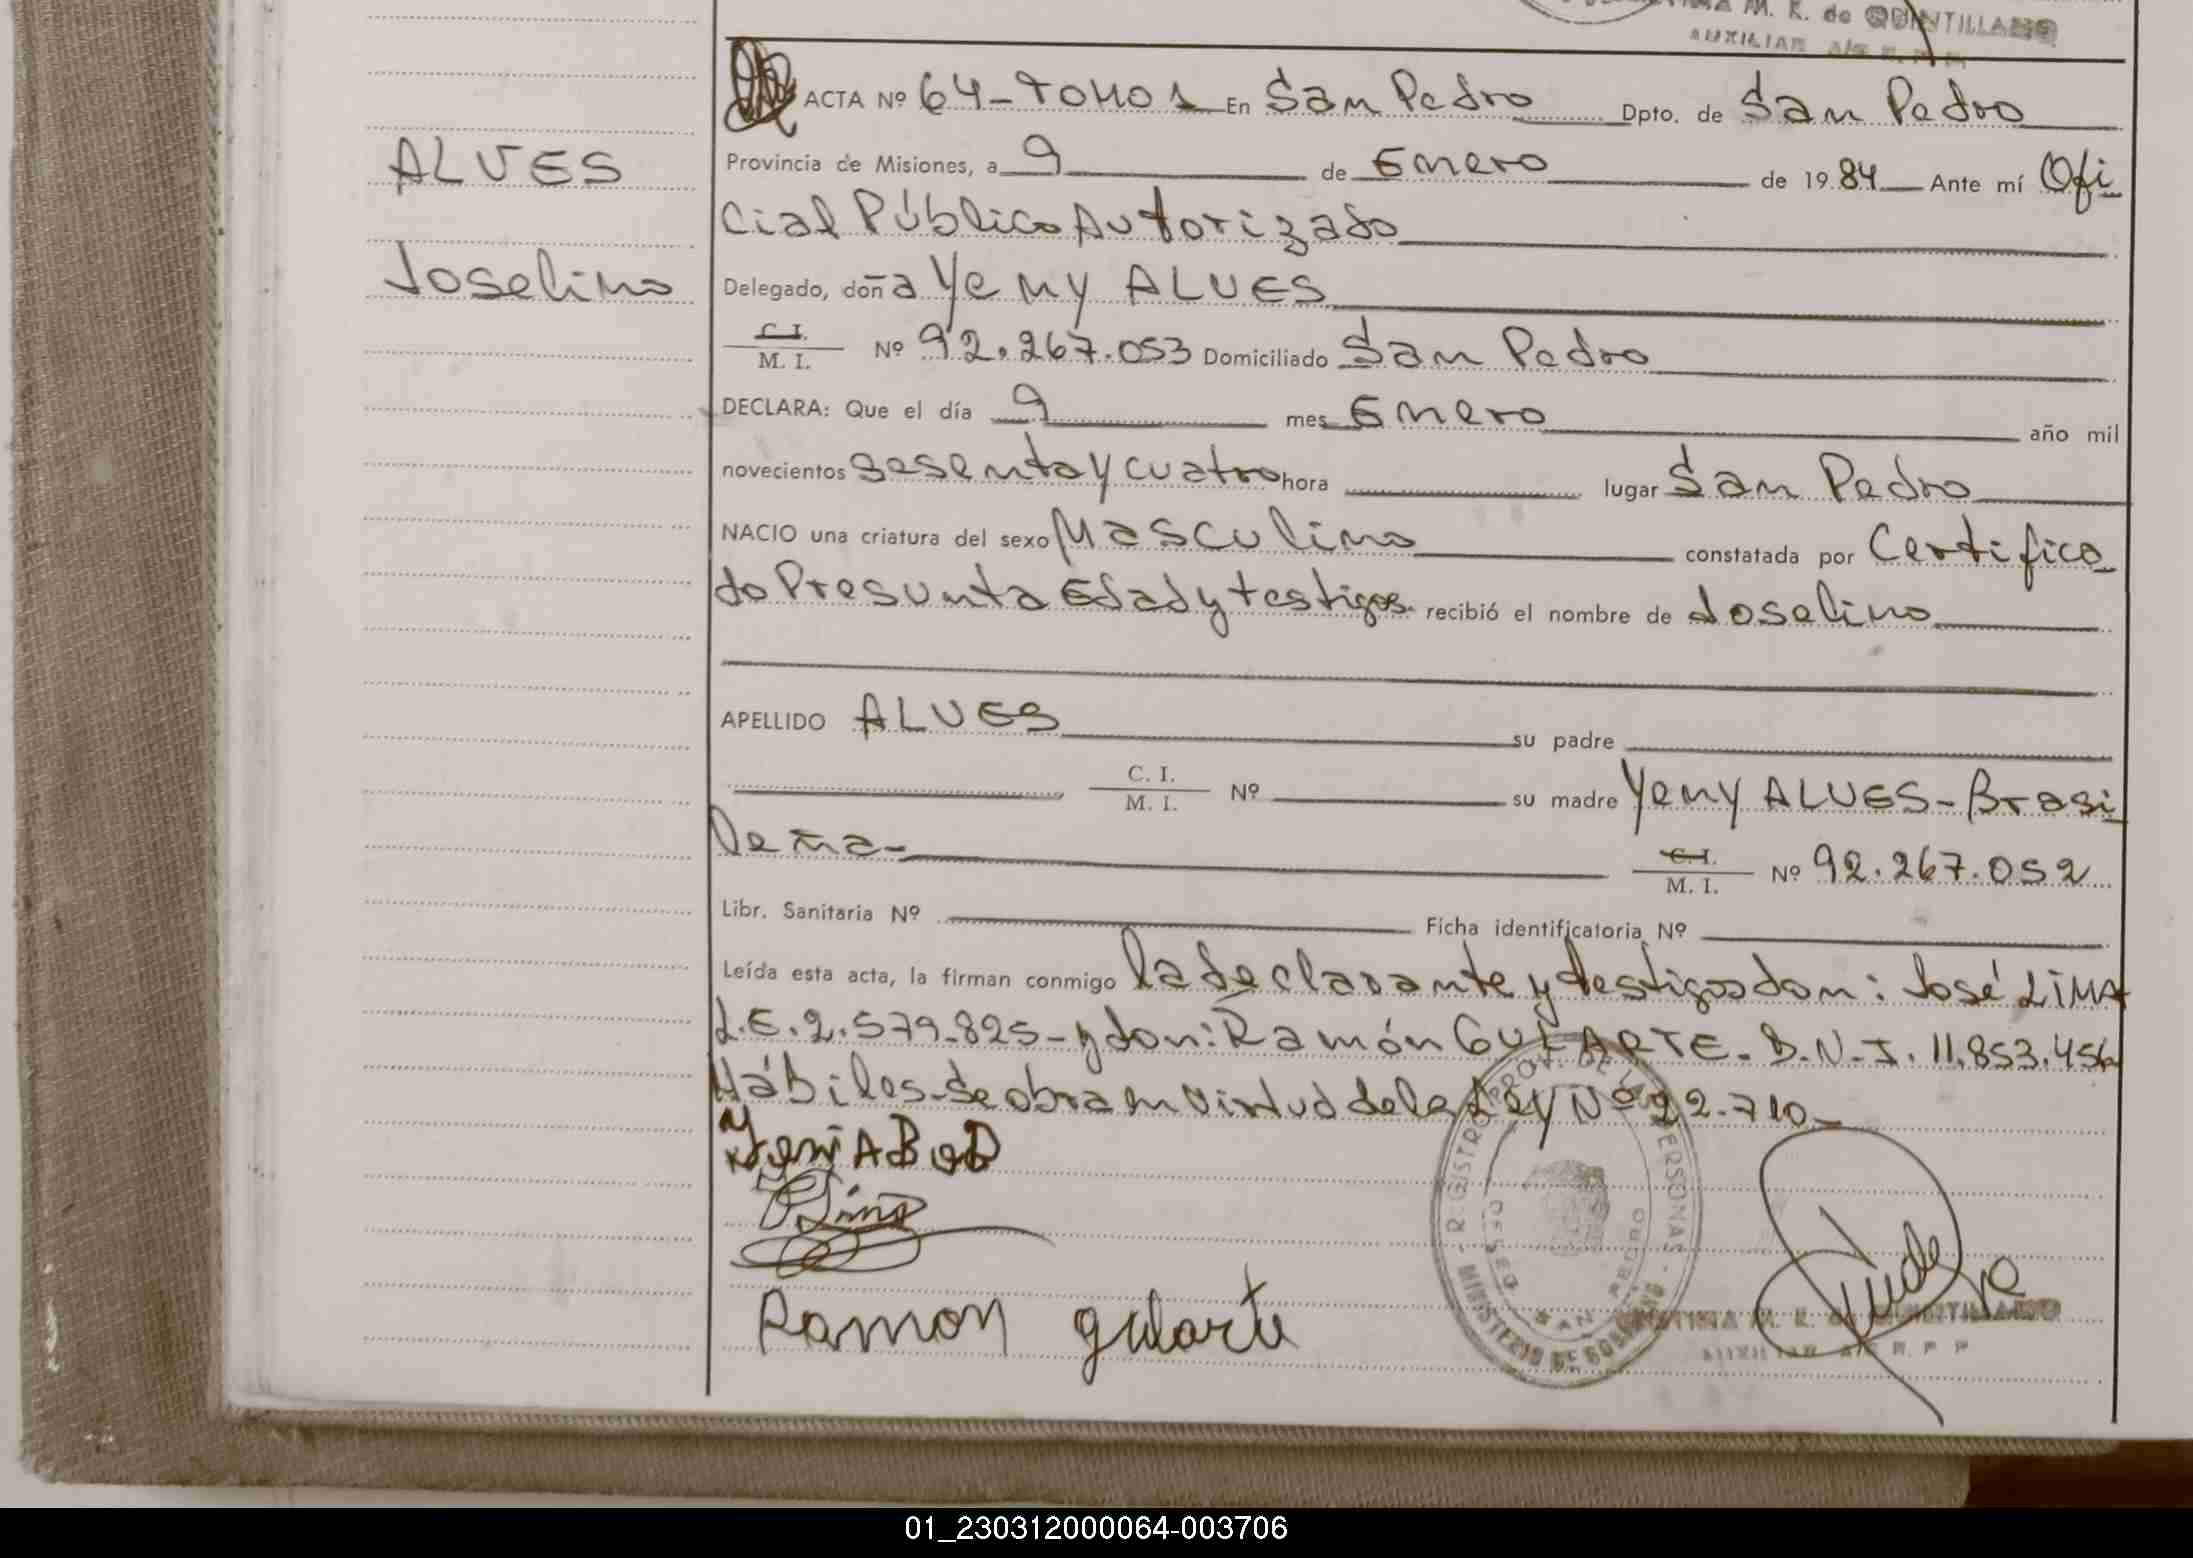 M. K. de QUINTILLANO
AUXILIAR A/C R. P. P.
ACTA Nº 64-TOMO 1 En San Pedro Dpto. de San Pedro
ALVES
Provincia de Misiones, a 9 de Enero de 1984 Ante mí Ofi
cial Público Autorizado
Joselino
Delegado, doña Yeny ALVES
C. I.
M. I. Nº 92.267.053 Domiciliado San Pedro
DECLARA: Que el día 9 mes Enero año mil
novecientos sesenta y cuatro hora lugar San Pedro
NACIO una criatura del sexo Masculino constatada por Certifica
do Presunta Edad y testigos. recibió el nombre de Joselino
APELLIDO ALVES su padre
C. I.
M. I. Nº su madre Yeny ALVES-Brasi
leña-
C. I.
M. I. Nº 92.267.052
Libr. Sanitaria Nº Ficha identificatoria Nº
Leída esta acta, la firman conmigo la declarante y testigos don: José LIMA
L.E. 2.579.825- y don: Ramón GULARTE. D.N.I. 11.853.456
Hábiles-Se obra en virtud de la Ley Nº 22.710-
Lima
Ramon gularte
REGISTRO PROV. DE LAS PERSONAS - MINISTERIO DE GOBIERNO
SAN PEDRO
CRISTINA M. K. de QUINTILLANO
AUXILIAR A/C R. P. P.
01_230312000064-003706